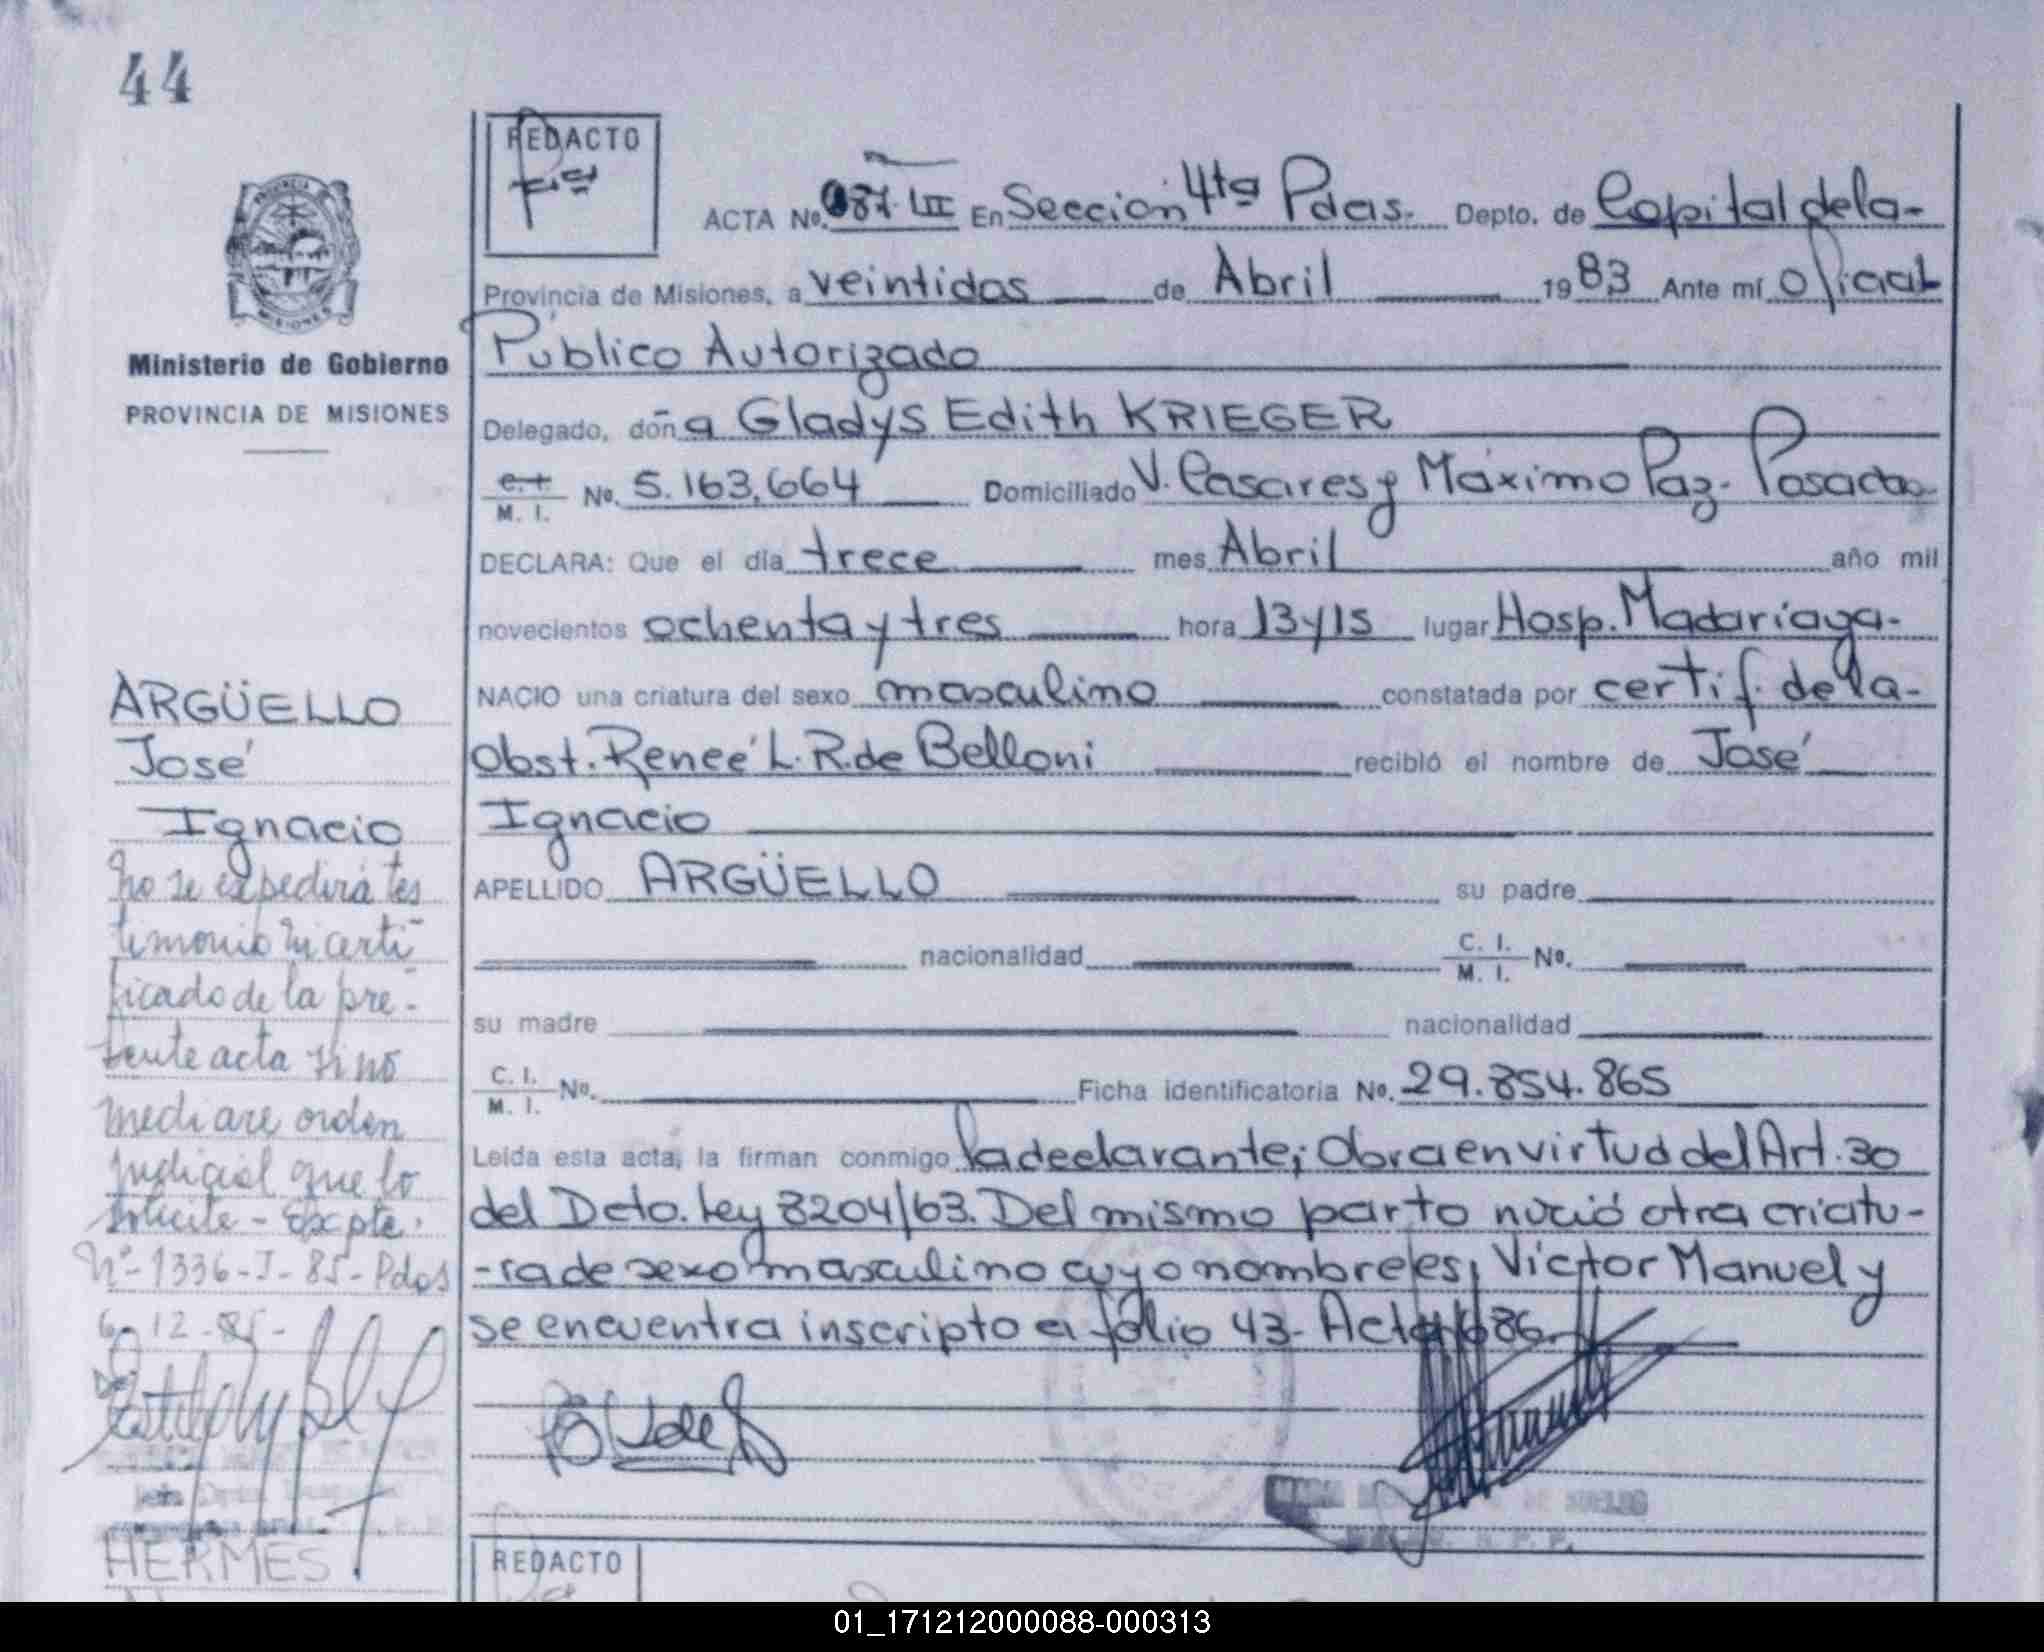 44
REDACTO
ACTA No. 087. LII En Sección 4ta Pdas. Depto. de Capital de la-
Provincia de Misiones, a veintidos de Abril 1983 Ante mí oficial
Público Autorizado
Ministerio de Gobierno
PROVINCIA DE MISIONES
Delegado, doña Gladys Edith KRIEGER
M. I. No. 5.163.664 Domiciliado V. Casares y Máximo Paz- Posadas
DECLARA: Que el día trece mes Abril año mil
novecientos ochenta y tres hora 13 y 15 lugar Hosp. Madariaga-
NACIO una criatura del sexo masculino constatada por certif. de la-
Obst. Reneé L. R. de Belloni recibió el nombre de José
Ignacio
APELLIDO ARGÜELLO su padre
nacionalidad C. I. M. I. No.
su madre nacionalidad
C. I. M. I. No. Ficha identificatoria No. 29.854.865
Leída esta acta, la firman conmigo la declarante; Obra en virtud del Art. 30
del Dcto. Ley 8204/63. Del mismo parto nació otra criatu-
-ra de sexo masculino cuyo nombre es, Víctor Manuel y
se encuentra inscripto a folio 43- Acta 686.
ARGÜELLO
José
Ignacio
No se expedirá tes
timonio ni certi-
ficado de la pre-
sente acta si no
mediare orden
judicial que lo
solicite - Expte.
Nº- 1336-J-85- Pdas
6-12-85-
HERMES
REDACTO
01_171212000088-000313